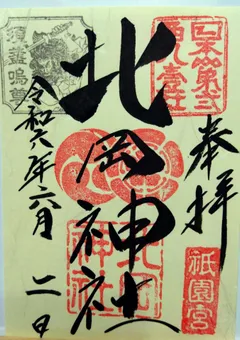 奉拝
日本第二
祇園宮
北岡神社
北岡
神社
須盞嗚尊
令和六年六月二日